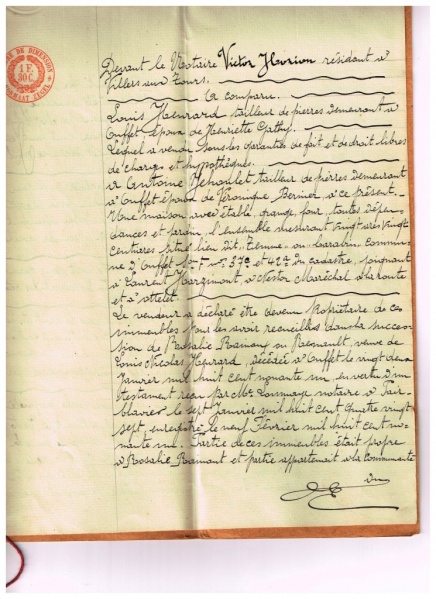 DE DIMENSION
1 F.
80 C.
Devant le Notaire Victor Horion résidant à
Villers aux Tours.
A comparu.
Louis Henrard tailleur de pierres demeurant à
Ouffet époux de Henriette Gathy.
Lequel a vendu sous les garanties de fait et de droit libres
de charges et hypothèques.
à Antoine Jehoulet tailleur de pierres demeurant
à Ouffet époux de Véronique Bernier à ce présent.
Une maison avec étable, grange, four, toutes dépen-
dances et jardin, l'ensemble mesurant vingt ares vingt
centiares situé lieu dit, Temme ou Carabin, Commu-
ne d'Ouffet Son F nos 37c et 42n du cadastre, joignant
à Laurent Hargimont, à Nestor Maréchal à la route
et à
Le vendeur a déclaré être devenu propriétaire de ces
immeubles pour les avoir recueillis dans la succes-
sion de Rosalie Ramont ou Renault, veuve de
Louis Nicolas Henrard, décédée à Ouffet le vingt deux
Janvier mil huit cent nonante un, en vertu d'un
testament reçu par Me notaire à
le sept Janvier mil huit cent quatre vingt
sept, enregistré le neuf Février mil huit cent no-
nante un. Partie de ces immeubles était propre
à Rosalie Ramont et partie appartenait à la communauté